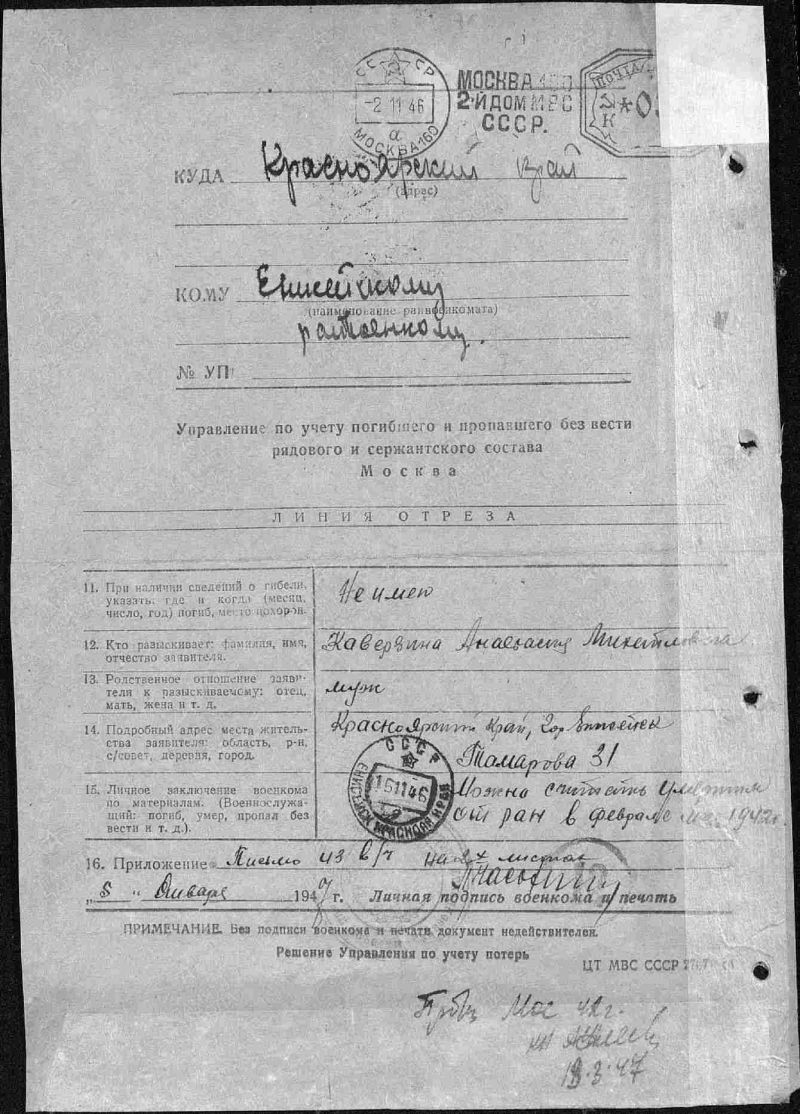 СССР
-2 11 46
а
МОСКВА 160
МОСКВА 160
2-Й ДОМ МВС
СССР.
ПОЧТА
КУДА Красноярский край
(адрес)
КОМУ Енисейскому
(наименование райвоенкомата)
№ УП
Управление по учету погибшего и пропавшего без вести
рядового и сержантского состава
Москва
ЛИНИЯ ОТРЕЗА
11. При наличии сведений о гибели, указать: где и когда (месяц, число, год) погиб, место похорон.
Не имею
12. Кто разыскивает: фамилия, имя, отчество заявителя.
Каверзина Анастасия Михайловна
13. Родственное отношение заявителя к разыскиваемому: отец, мать, жена и т. д.
муж
14. Подробный адрес места жительства заявителя: область, р-н, с/совет, деревня, город.
Красноярский край, гор Енисейск
31
СССР
16 11 46
ЕНИСЕЙСК КРАСНОЯР КРАЯ
15. Личное заключение военкома по материалам. (Военнослужащий: погиб, умер, пропал без вести и т. д.).
Можно считать умершим
от ран в феврале 1942г.
16. Приложение Письмо из в/ч на 2х листах
„8 " Января 1947 г. Личная подпись военкома и печать
ПРИМЕЧАНИЕ. Без подписи военкома и печати документ недействителен.
Решение Управления по учету потерь
ЦТ МВС СССР
42г.
3.47